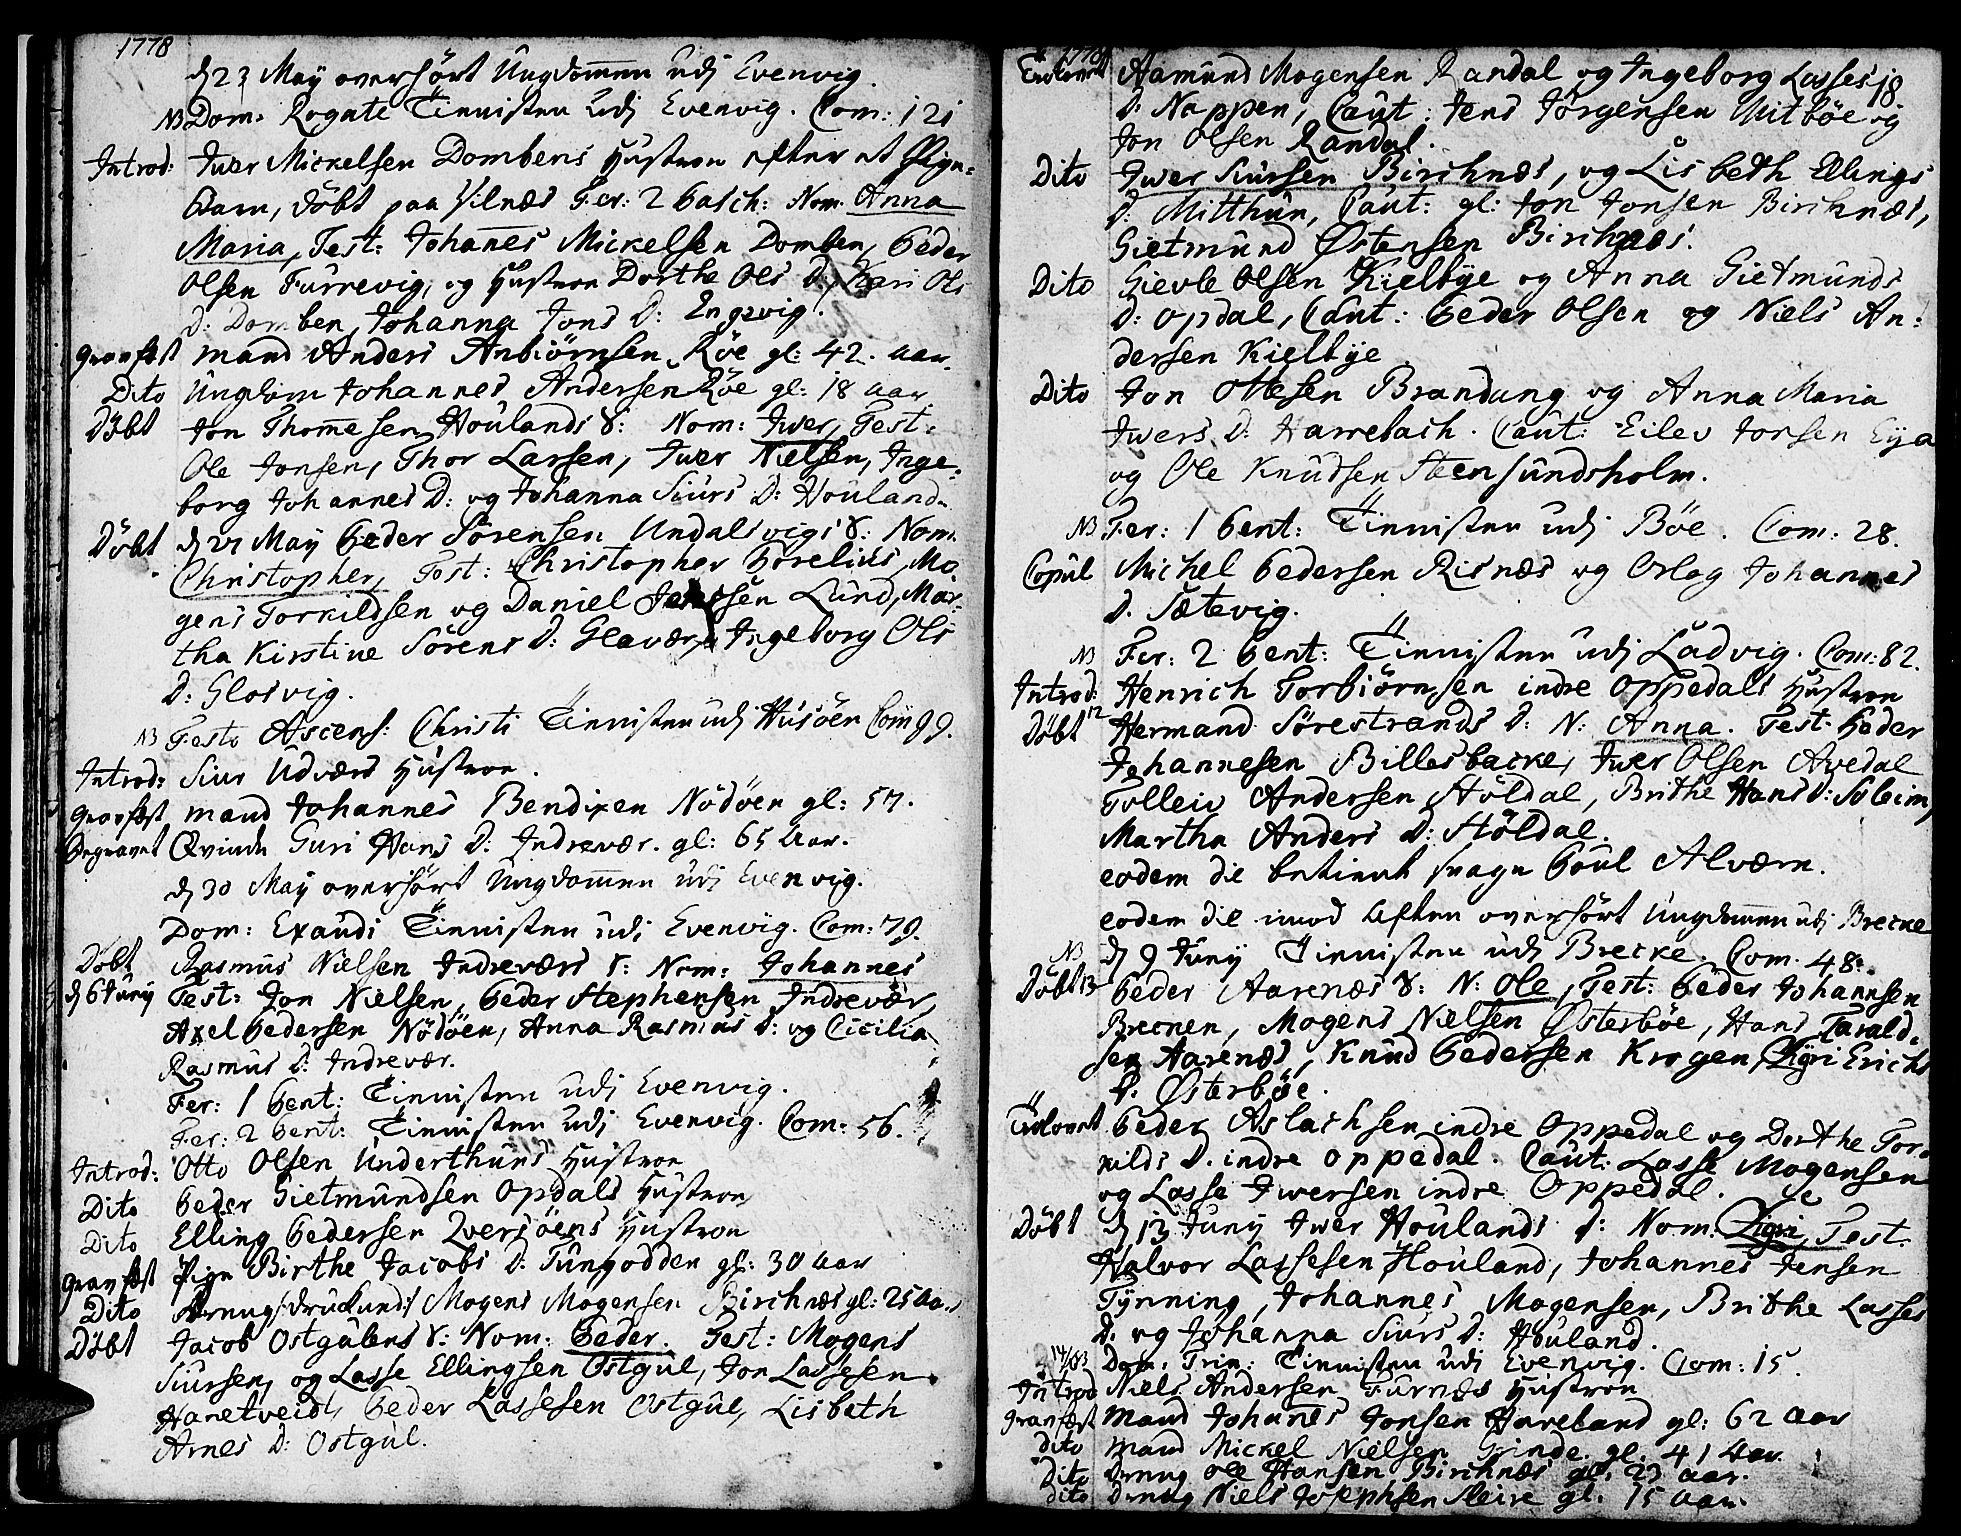 1778
d 23 Maÿ overhört Ungdommen udj Evenvig.
NB Dom: Rogate Tienisten udj Evenvig. Com: 121
Introd: Iver Mickelsen Dombens Hustroe efter et Pige-
Barn, döbt paa Vilnæs Fer: 2 Pasch: Nom. Anna
Maria, Test: Johanes Mickelsen Domben, Peder
Olsen Furrevig, og Hustroe Dorthe Ols D: Kari Ols
D: Domben, Johanna Jons D: Engevig.
Gravfæst Mand Anders Anbiörnsen Röe gl: 42. Aar.
Dito Ungdom Johannes Andersen Röe gl: 18 Aar
Döbt Jon Thomesen Houlands S: Nom: Iver, Test:
Ole Jonsen, Thor Larsen, Iver Nielsen, Inge-
borg Johannes D: og Johanna Siurs D: Houland.
Döbt d 27 Maÿ Peder Sörensen Undalsvigs S: Nom.
Christopher, Test: Christopher Borelius, Mo-
gens Torkildsen og Daniel Jensen Lund, Mar-
tha Kirstine Sörens D: Glavær, Ingeborg Ols
D: Glosvig.
NB Festo Ascens: Christi Tienisten udj Husöen Com 99.
Introd: Siur Udværs Hustroe.
Gravfæst Mand Johannes Bendixen Nödöen gl: 57.
Begravet Qvinde Guri Hans D: Indrevær. gl: 65 Aar.
d 30 Maÿ overhört Ungdommen udj Evenvig.
Dom: Exaudi Tienisten udj Evenvig. Com: 79.
Döbt Rasmus Nielsen Indreværs S: Nom: Johannes
d 6 Junÿ Test: Jon Nielsen, Peder Stephensen Indrevær,
Axel Pedersen Nödöen, Anna Rasmus D: og Cicilia
Rasmus D: Indrevær.
Fer: 1 Pent: Tienisten udj Evenvig.
Fer: 2 Pent: Tienisten udj Evenvig. Com: 56.
Introd: Otto Olsen Underthuns Hustroe
Dito Peder Gietmundsen Opdals Hustroe
Dito Elling Pedersen Qversöens Hustroe
Gravfæst Pige Birthe Jacobs D: Tungodden gl: 30 Aar
Dito Dreng /:druckend:/ Mogens Mogensen Birchnæs gl: 25 Aar
Döbt Jacob Ostgulens S: Nom: Peder. Test: Mogens
Siursen, og Lasse Ellingsen Ostgul, Jon Lassesen
Hanetveidt, Peder Lassesen Ostgul, Lisbeth
Arnes D: Ostgul.
1778
18
Trolovet Aamund Mogensen Randal og Ingeborg Lasses
D: Nappen, Caut: Jens Jörgensen Mitböe og
Jon Olsen Randal.
Dito Iver Siursen Birchnæs, og Lisbeth Ellings
D: Mitthun, Caut: gl: Jon Jonsen Birchnæs,
Gietmund Östensen Birchnæs.
Dito Gievle Olsen Kielbÿe og Anna Gietmunds
D: Opdal, Caut: Peder Olsen og Niels An-
dersen Kielbÿe
Dito Jon Ottesen Brandung og Anna Maria
Ivers D: Harrebach. Caut: Eilev Jorsen Eÿa
og Ole Knudsen Steensundsholm.
NB Fer: 1 Pent: Tienisten udj Böe. Com: 28.
Copul Michel Pedersen Risnæs og Orlog Johannes
D. Sætevig.
NB Fer: 2 Pent: Tienisten udj Ladvig. Com: 82.
Introd: Henrich Torbiörnsen indre Oppedals Hustroe
Döbt 12 Hermand Sörestrands D: N: Anna. Test: Peder
Johannesen Billesbacke, Iver Olsen Avedal
Tolleiv Andersen Stöldal, Brithe Hans D: Soleim,
Martha Anders D: Stöldal.
eodem die betient svage Poul Alværn.
eodem die imod Aften overhört Ungdommen udj Brecke
NB d 9 Junÿ Tienisten udj Brecke. Com. 48.
Döbt 13 Peder Aarenæs S: N: Ole, Test: Peder Johannsen
Brecken, Mogens Nielsen Österböe, Hans Tarald-
sen Aarenæs, Knud Pedersen Krogen, Sigri Erichs
D. Österböe.
Trolovet Peder Aslachsen indre Oppedal og Dorthe Tor-
kilds D. indre Oppedal. Caut: Lasse Mogensen
og Lasse Iversen indre Oppedal.
Döbt d 13 Junÿ Iver Houlands D: Nom. Sigri, Test.
Halvor Lassesen Houland, Johannes Jensen
Tÿnning, Johannes Mogensen, Brithe Lasses
D. og Johanna Siurs D: Houland.
14/ NB Dom. Trin: Tienisten udj Evenvig. Com: 15.
Introd Niels Andersen Furnæs Hustroe
Gravfæst Mand Johanes Jonsen Haveland gl: 62 Aar
Dito Mand Mickel Nielsen Grinde gl. 41 Aar
Dito Dreng Ole Hansen Birchnæs gl. 23 aar.
Dito Dreng Niels Josephsen Sleire gl. 15 Aar.